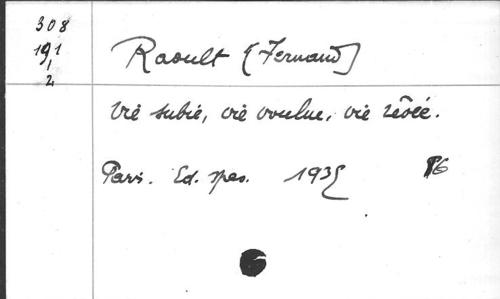 308
191
1
2
Raoult (Fernand)
Vie subie, vie voulue, vie rêvée.
Paris. Ed. Spes. 1935